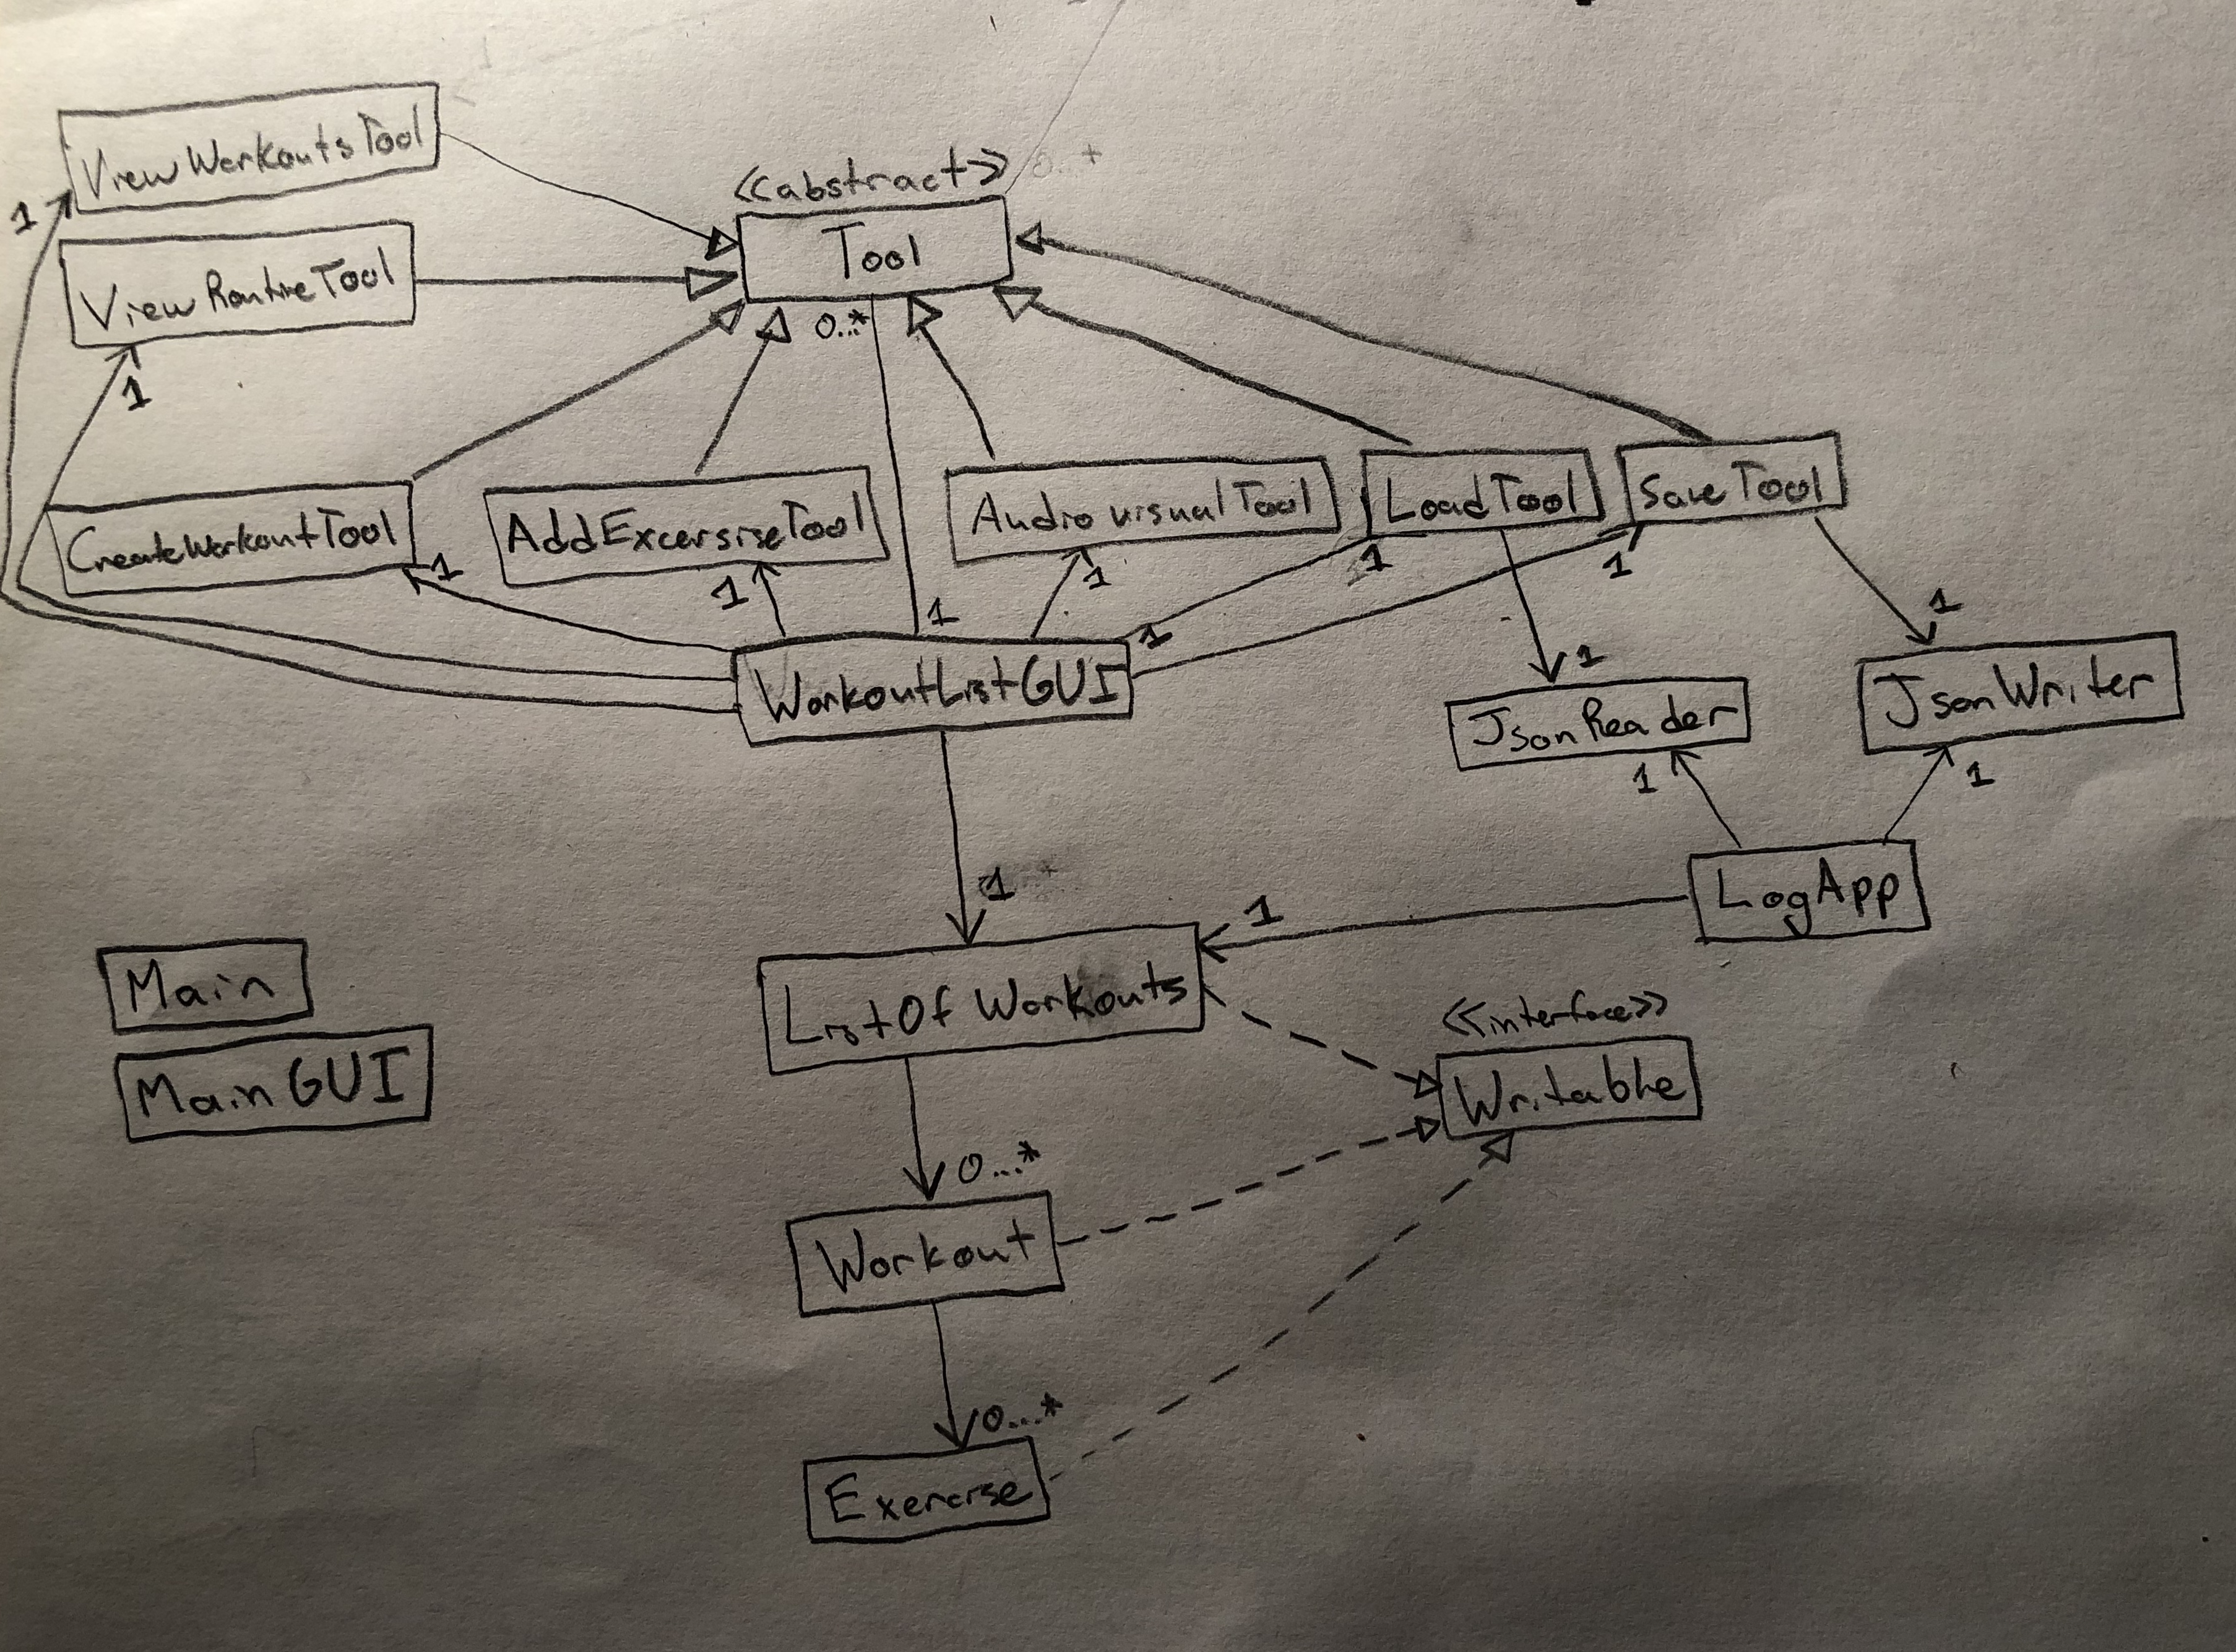 ViewWorkoutsTool
1
<<abstract>>
0...*
Tool
ViewRoutineTool
0...*
1
CreateWorkoutTool
AddExcersiseTool
AudiovisualTool
LoadTool
SaveTool
1
1
1
1
1
1
1
1
1
WorkoutListGUI
JsonReader
JsonWriter
1
1
1
LogApp
1
Main
ListOfWorkouts
<<interface>>
MainGUI
Writable
0...*
Workout
0...*
Exercise